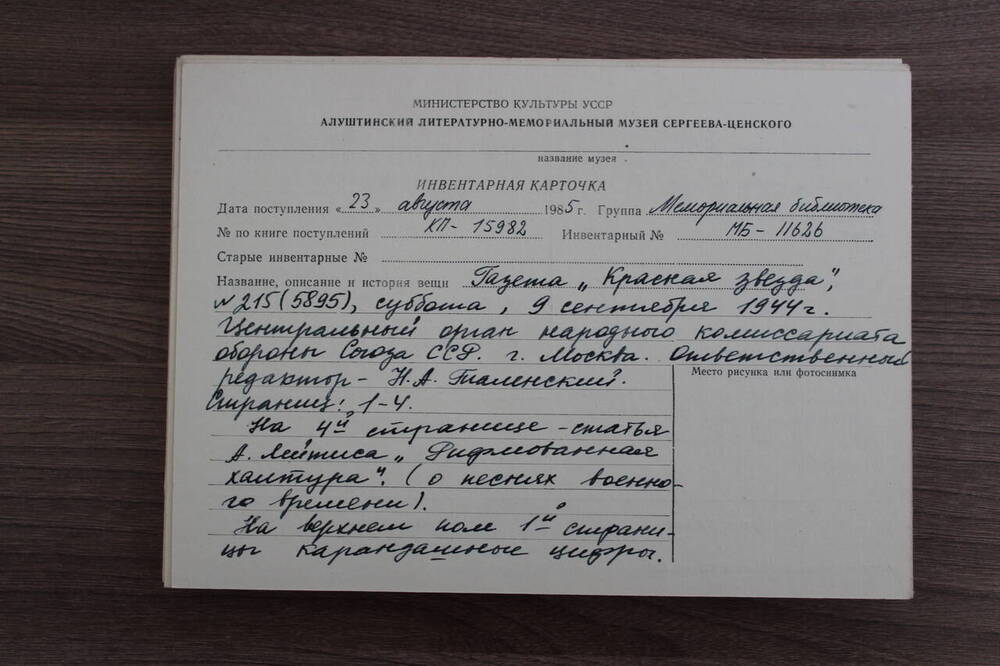 МИНИСТЕРСТВО КУЛЬТУРЫ УССР
АЛУШТИНСКИЙ ЛИТЕРАТУРНО-МЕМОРИАЛЬНЫЙ МУЗЕЙ СЕРГЕЕВА-ЦЕНСКОГО
название музея
ИНВЕНТАРНАЯ КАРТОЧКА
Дата поступления «23» августа 1985г. Группа Мемориальная библиотека
№ по книге поступлений КП- 15982 Инвентарный № МБ - 11626
Старые инвентарные №
Название, описание и история вещи Газета „Красная звезда",
№215(5895), суббота, 9 сентября 1944г.
Центральный орган народного комиссариата
обороны Союза ССР. г. Москва. Ответственный
редактор - Н.А. Таленский.
Место рисунка или фотоснимка
Страниц: 1-4.
На 4й странице - статья
А. Лейтиса „Рифмованная
халтура". (о песнях военно-
го времени).
На верхнем поле 1й страни-
цы карандашные цифры.